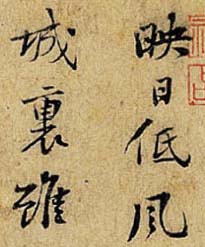 映日低風
城裏雖